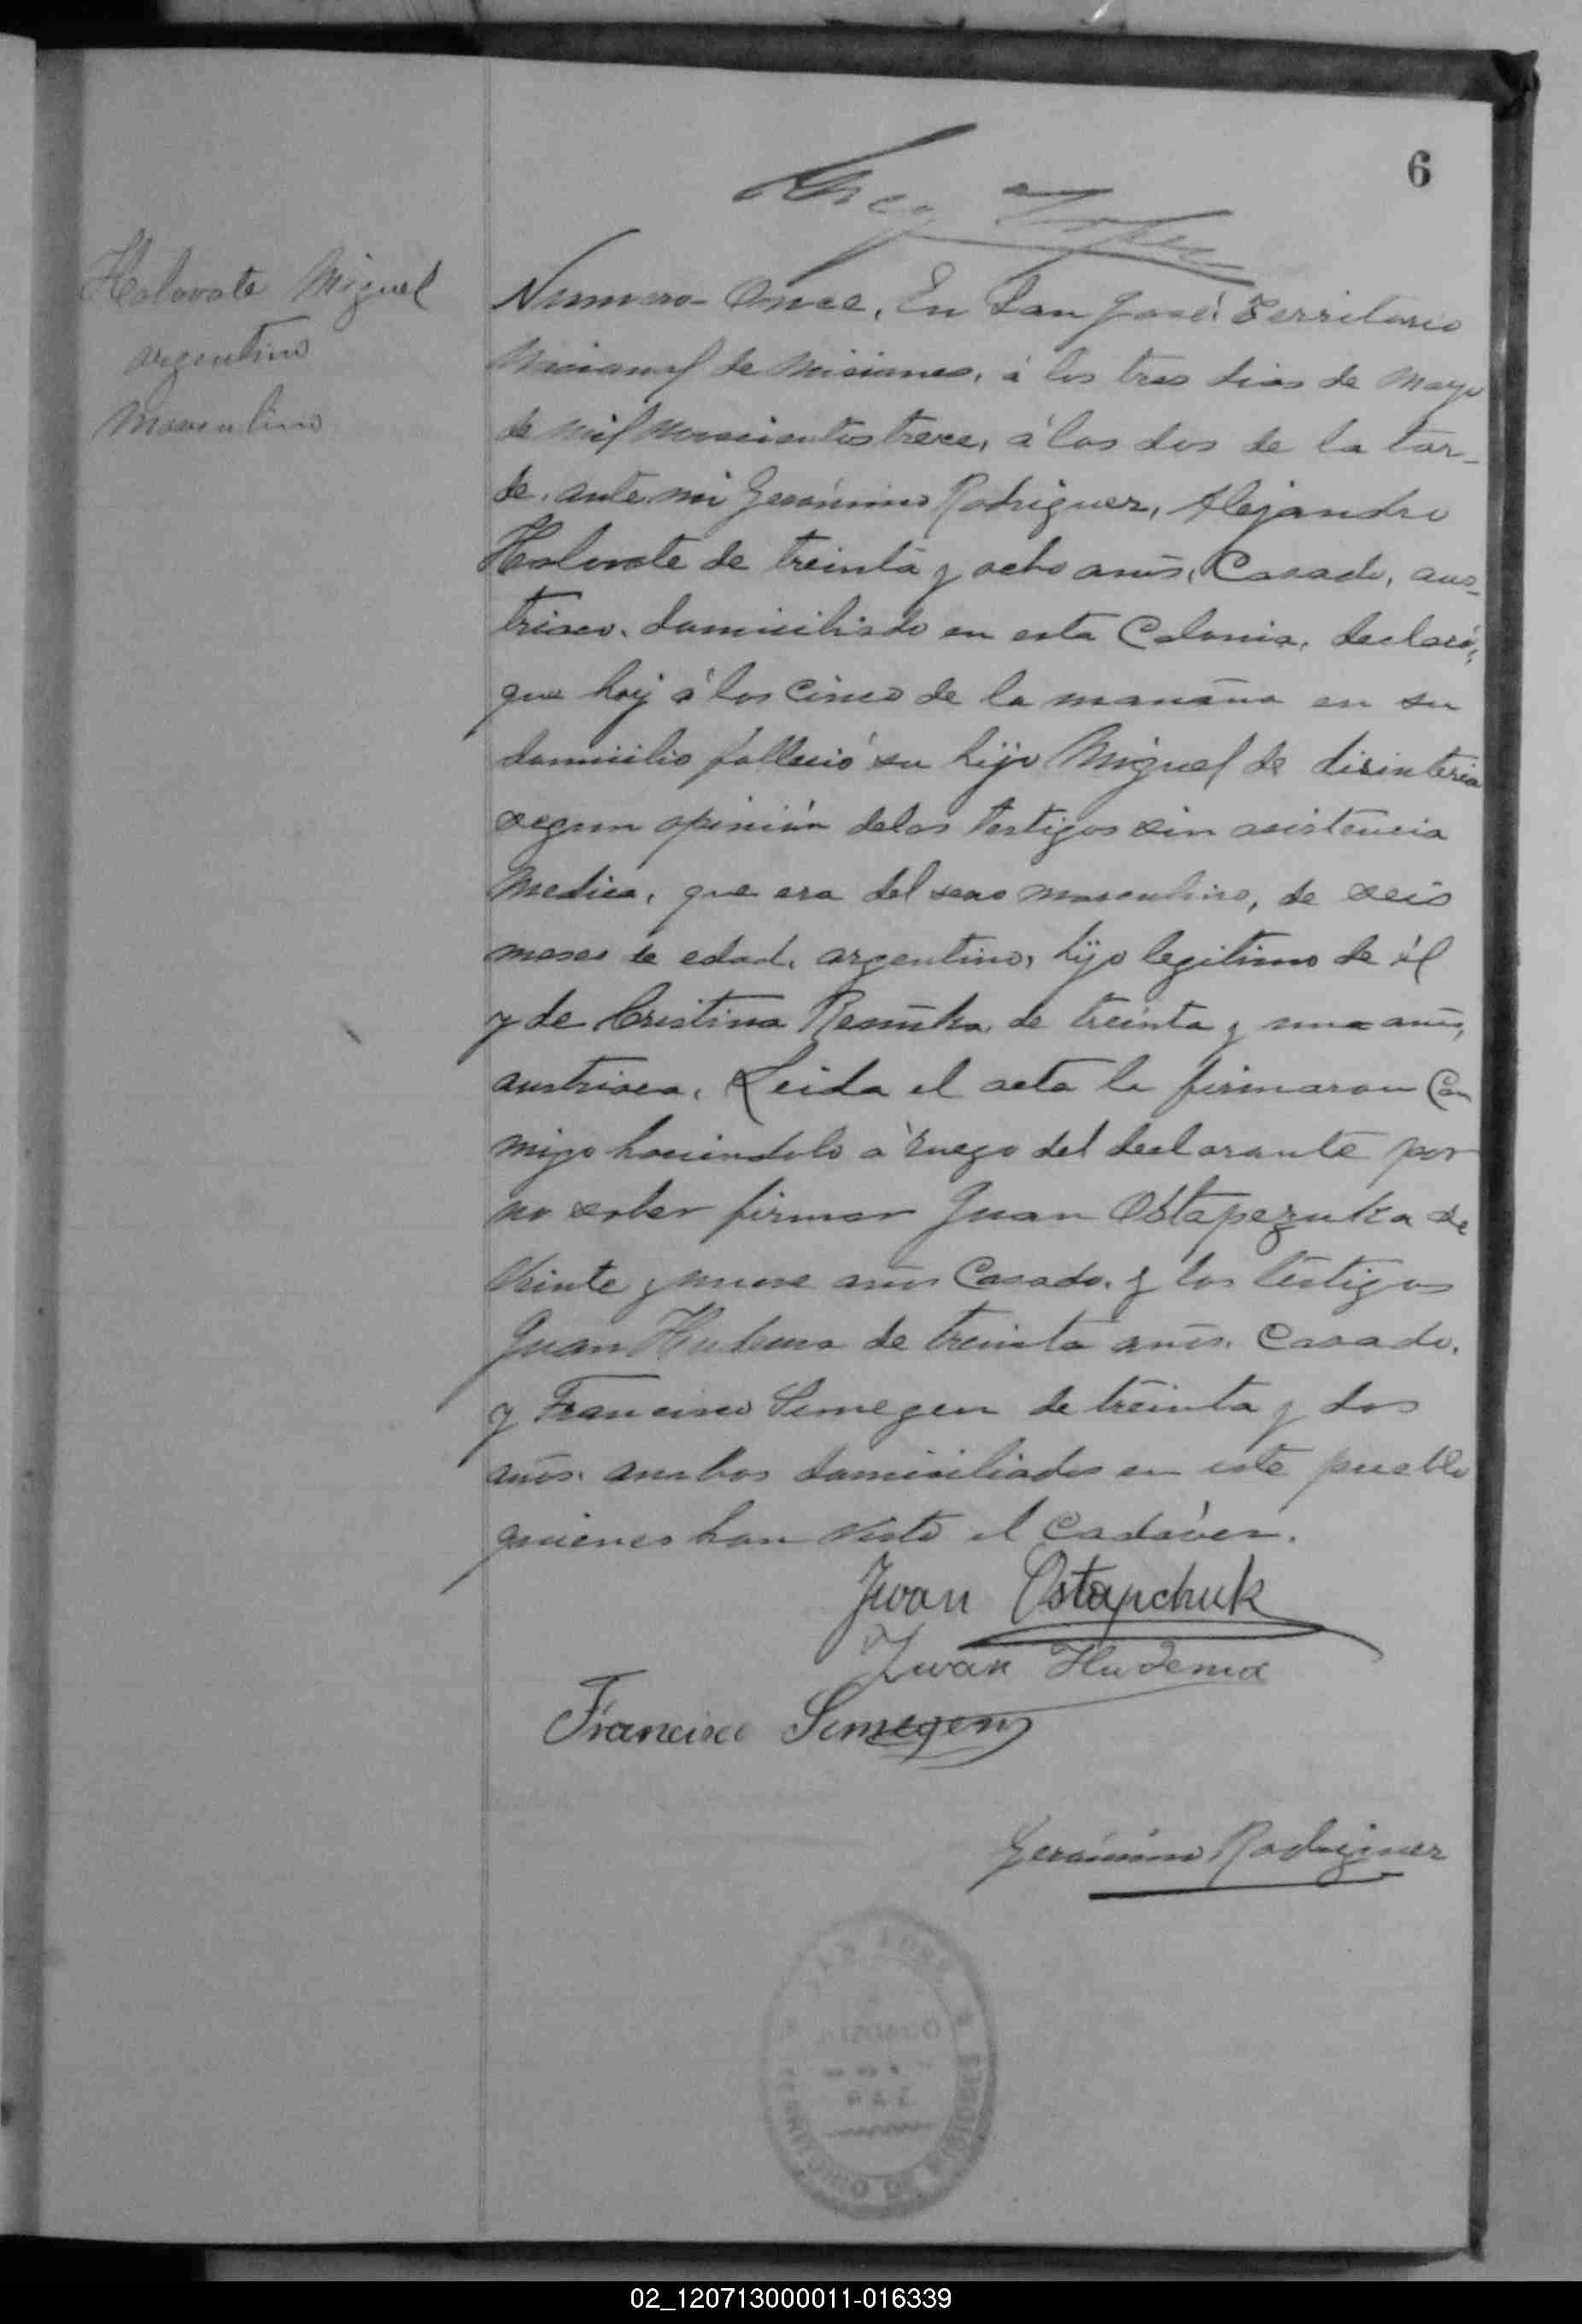 6
Holovate Miguel
argentino
Masculino
Numero Once, En San José, Territorio
Nacional de Misiones, á los tres dias de Mayo
de mil novecientos trece, á las dos de la tar-
de, ante mi Gerónimo Rodriguez, Alejandro
Holovate de treinta y ocho anos, Casado, aus-
triaco, domiciliado en esta Colonia, declaró,
que hoy á las cinco de la manãna en su
domicilio falleció su hijo Miguel de disinteria
segun opinión delos testigos sin asistencia
Medica, que era del sexo masculino, de seis
meses de edad, argentino, hijo legitimo de él
y de Cristina de treinta y una anõs,
austriaca, Leida el acta la firmaron Con
migo haciendolo a ruego del declarante por
no saber firmar Juan Ostapezuka de
Veinte y nueve anõs Casado, y los testigos
Juan Hudema de treinta anõs, Casado,
y Francisco Semegen de treinta y dos
anõs, ambos domiciliados en este pueblo
quienes han visto el Cadáver.
Iwan Ostapchuk
Iwan Hudema
Francisco Semegen
Gerónimo Rodriguez
SAN JOSE
02_120713000011-016339